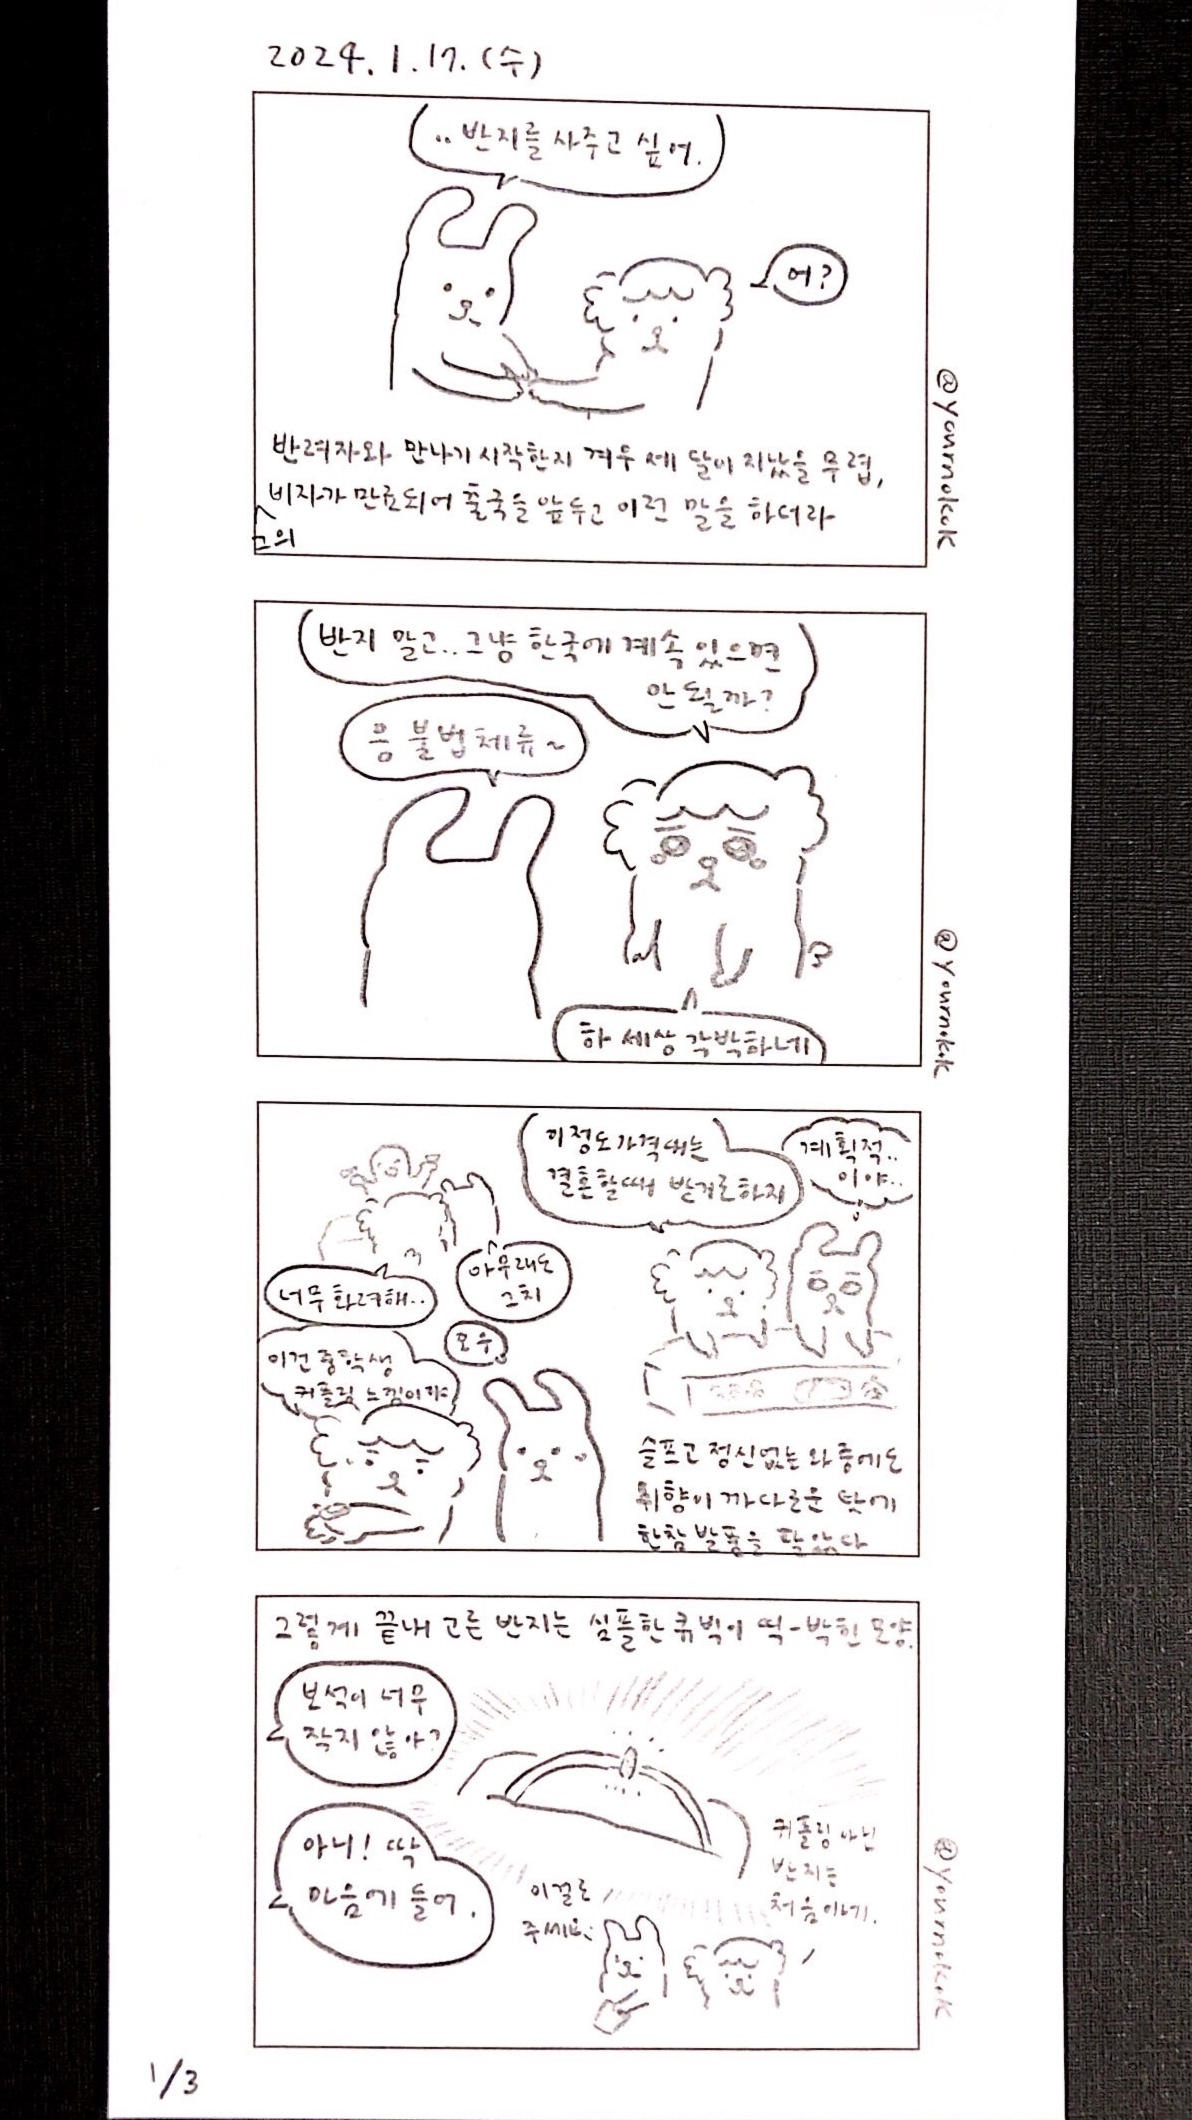 2024. 1. 17. (수)
.. 반지를 사주고 싶어.
어?
반려자와 만나기 시작한지 겨우 세 달이 지났을 무렵,
비자가 만료되어 출국을 앞두고 이런 말을 하더라
그의
@yournokok
반지 말고.. 그냥 한국에 계속 있으면
안 될까?
응 불법체류~
하 세상 각박하네
@yournokok
이정도 가격대는
결혼할때 받기로하지
계획적..
이야..
너무 화려해..
아무래도
그치
오우
이건 중학생
커플링 느낌이야
슬프고 정신없는 와중에도
취향이 까다로운 탓에
한참 발품을 팔았다
그렇게 끝내 고른 반지는 심플한 큐빅이 떡-박힌 모양.
보석이 너무
작지 않아?
아니! 딱
마음에 들어.
커플링 아닌
반지는
처음이네.
이걸로
주세요.
@yournokok
1/3